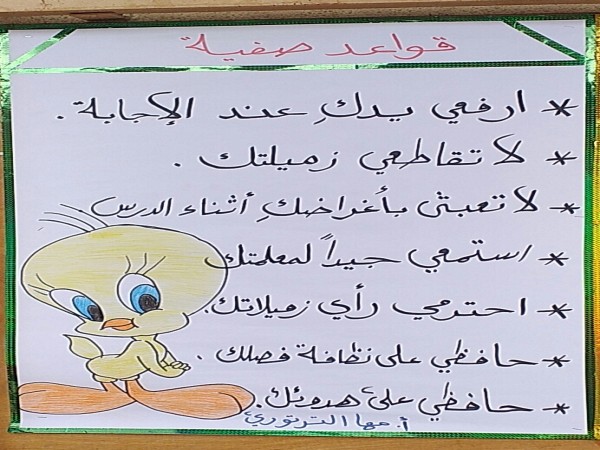 قواعد صفية
* ارفعي يدكِ عند الإجابة.
* لا تقاطعي زميلتك.
* لا تعبثي بأغراضكِ أثناء الدرس
* استمعي جيداً لمعلمتك
* احترمي رأي زميلاتك.
* حافظي على نظافة فصلك.
* حافظي على هدوئك.
أ. مها الترتوري